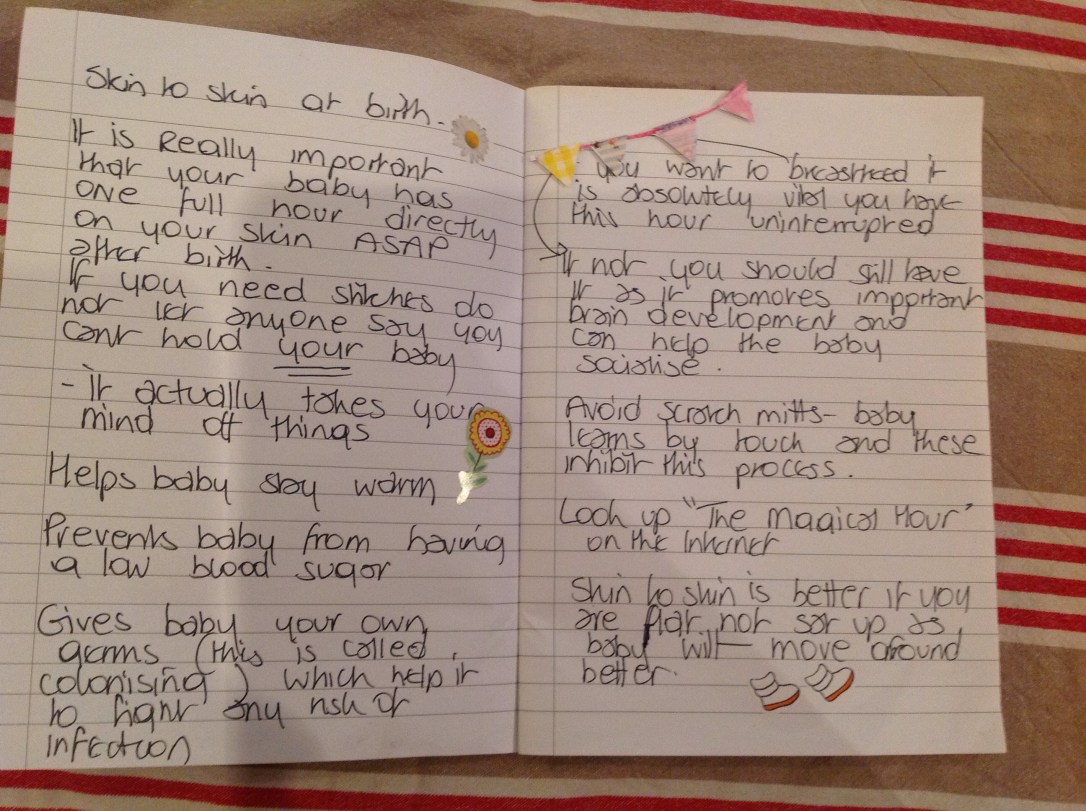 Skin to skin at birth.
It is Really important
that your baby has
one full hour directly
on your skin ASAP
after birth.
If you need stitches do
not let anyone say you
cant hold your baby
- it actually takes your
mind off things
Helps baby stay warm
Prevents baby from having
a low blood sugar
Gives baby your own
germs (this is called
colonising) which help it
to fight any risk of
infection
you want to breastfeed it
is absolutely vital you have
this hour uninterrupted
If not you should still have
it as it promotes important
brain development and
can help the baby
socialise.
Avoid scratch mitts - baby
learns by touch and these
inhibit this process.
Look up "The Magical Hour"
on the internet
Skin to skin is better if you
are flat not sat up as
baby will move around
better.